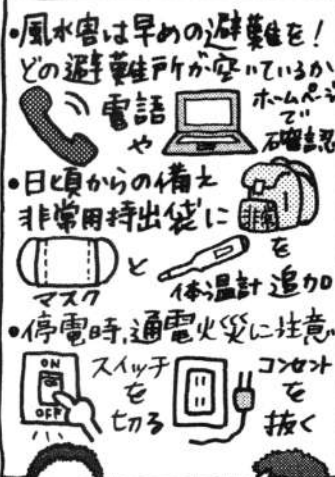 •風水害は早めの避難を!
どの避難所が空いているか
電話や
ホームページで確認
•日頃からの備え
非常用持出袋に
非常
マスクと
体温計を追加
•停電時、通電火災に注意
ON
OFF
スイッチを切る
コンセントを抜く